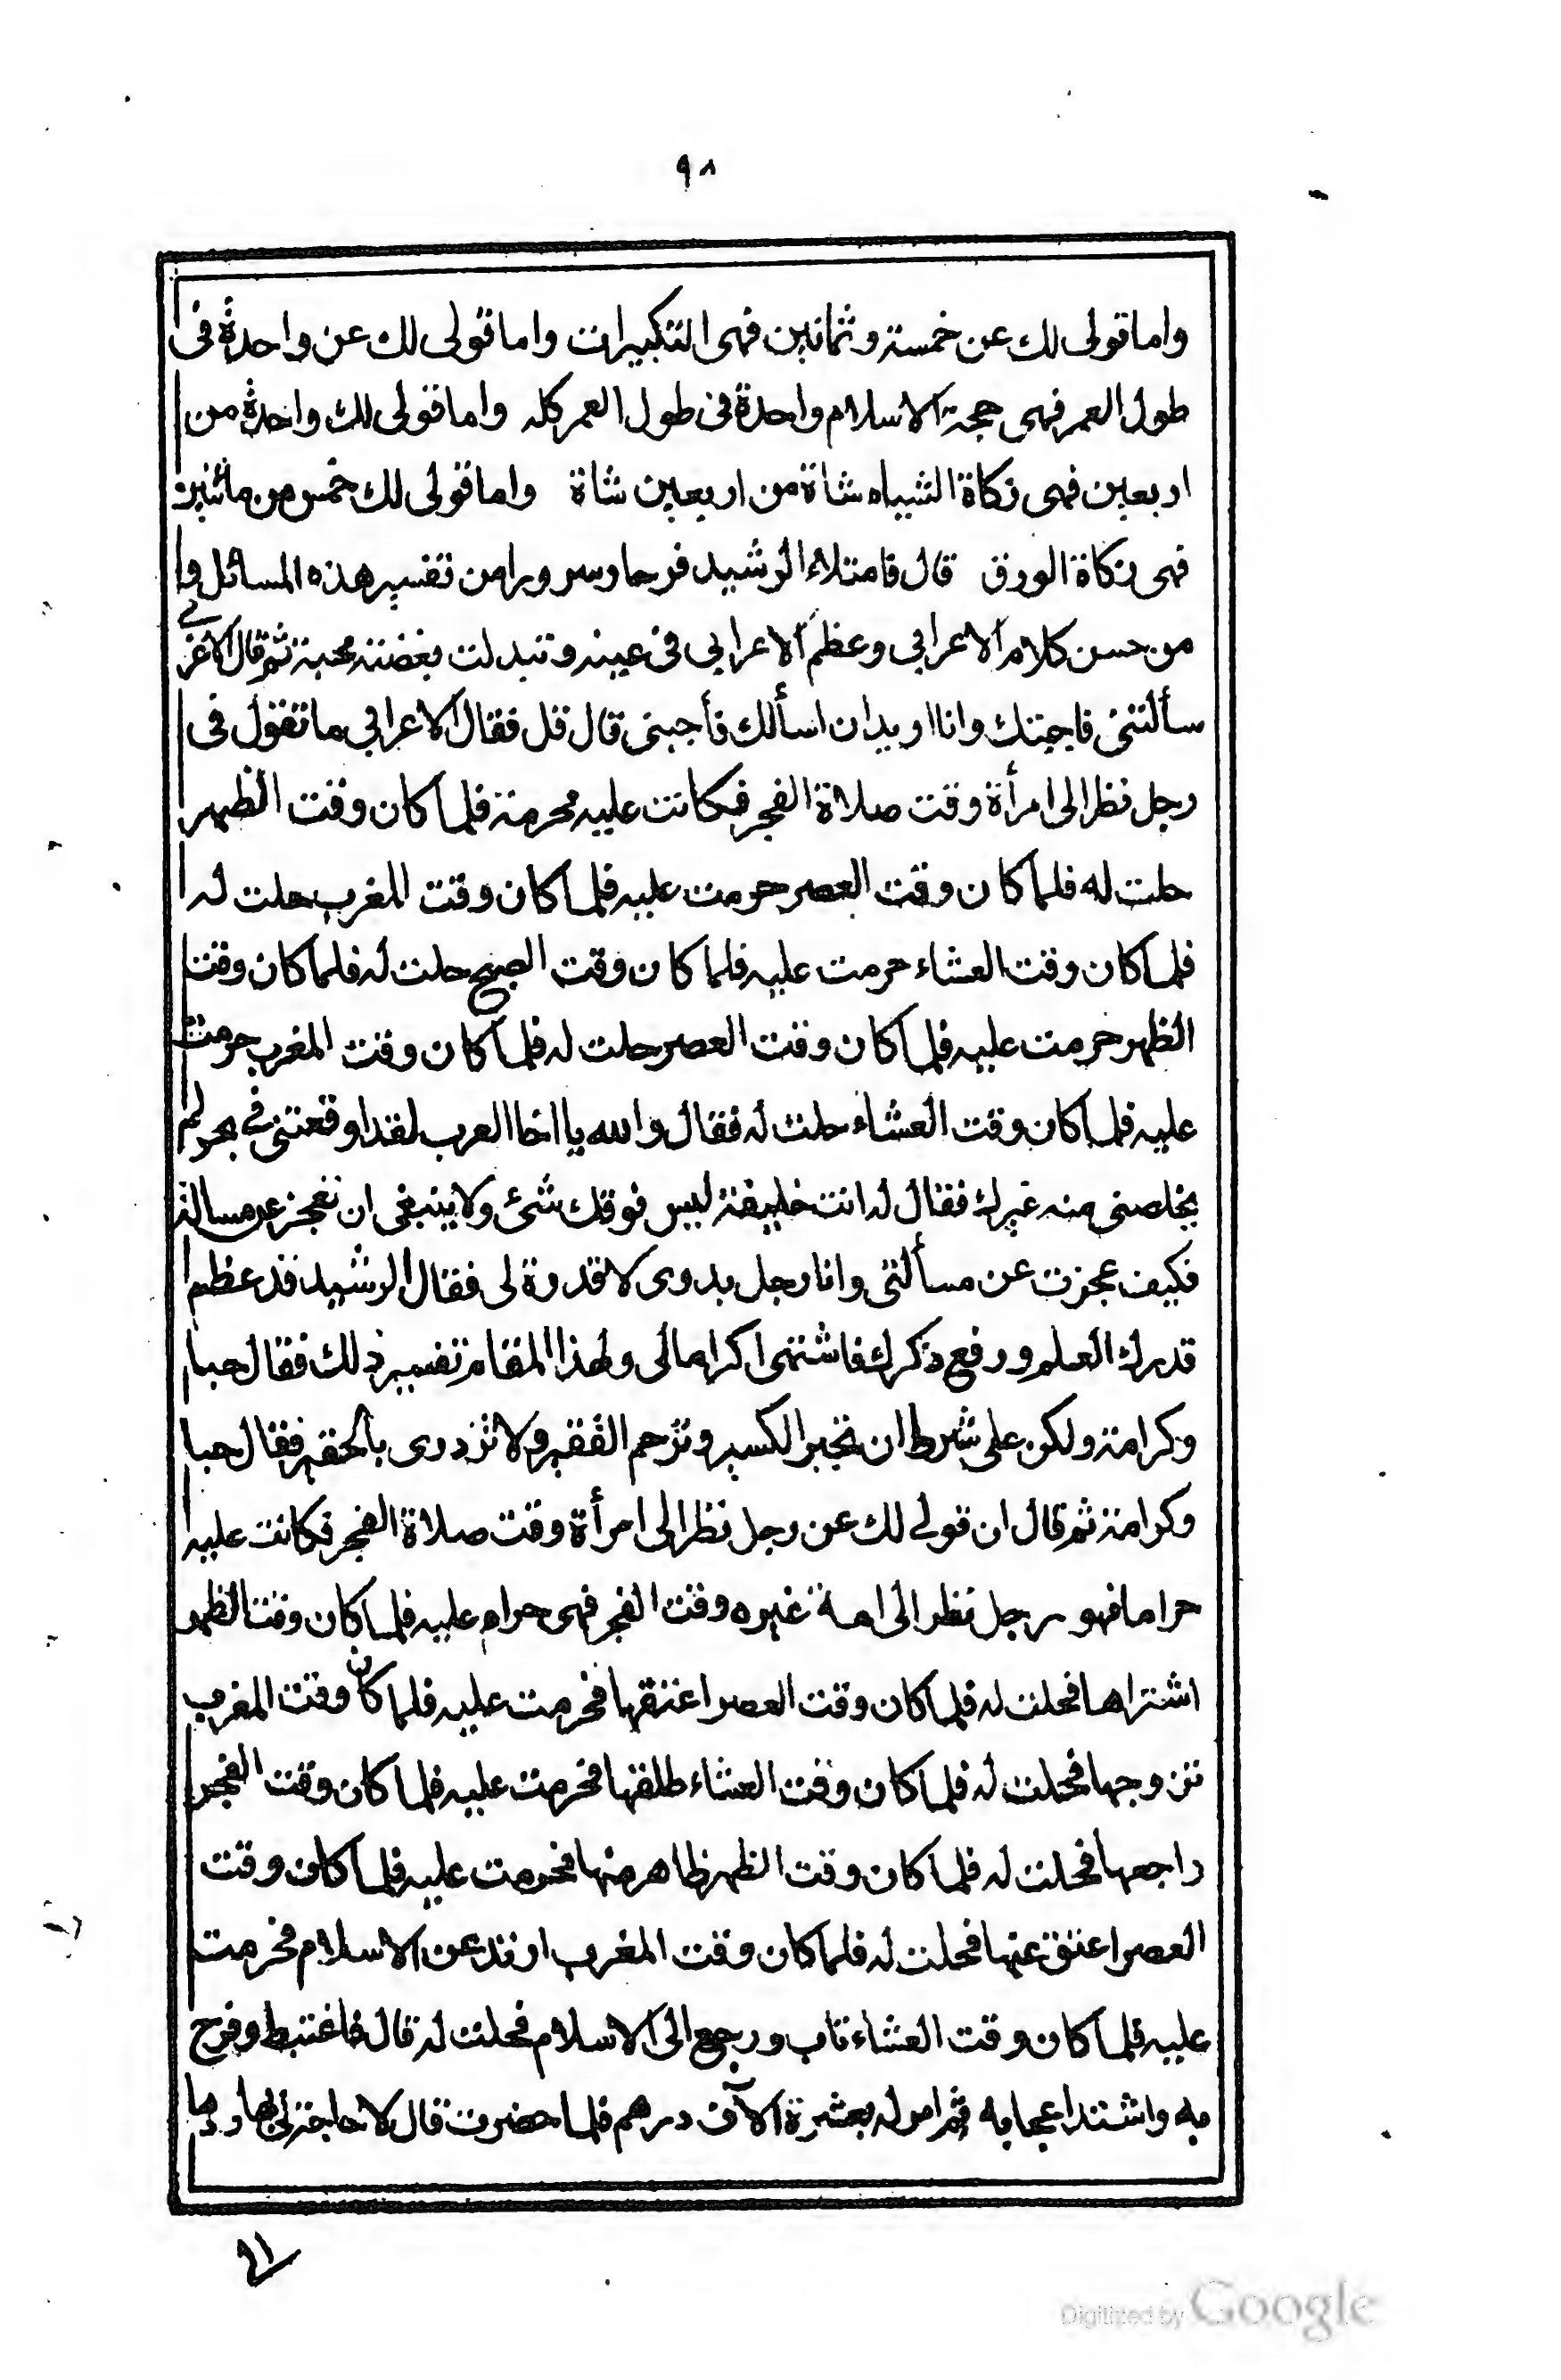 ٩٨
واما قولى لك عن خمسة وثمانين فهى التكبيرات واما قولى لك عن واحدة فى
طول العمر فهى حجة الاسلام واحدة فى طول العمر كله واما قولى لك واحدة من
اربعين فهى زكاة الشياه شاة من اربعين شاة واما قولى لك خمس من مائتين
فهى زكاة الورق قال فامتلاء الرشيد فرحا وسرورا من تفسير هذه المسائل و
من حسن كلام الاعرابي وعظم الاعرابي فى عينه وتبدلت بغضته محبة ثم قال الاعرابي
سألتنى فاجبتك وانا اريد ان اسألك فأجبنى قال قل فقال الاعرابي ما تقول فى
رجل نظر الى امرأة وقت صلاة الفجر فكانت عليه محرمة فلما كان وقت الظهر
حلت له فلما كان وقت العصر حرمت عليه فلما كان وقت المغرب حلت له
فلما كان وقت العشاء حرمت عليه فلما كان وقت الصبح حلت له فلما كان وقت
الظهر حرمت عليه فلما كان وقت العصر حلت له فلما كان وقت المغرب حرمت
عليه فلما كان وقت العشاء حلت له فقال والله يا اخا العرب لقد اوقعتنى في بحر لم
يخلصنى منه غيرك فقال له انت خليفة ليس فوقك شئ ولا ينبغى ان تعجز عن مسالة
فكيف عجزت عن مسألتى وانا رجل بدوى لا قدرة لى فقال الرشيد قد عظم
قدرك العلم ورفع ذكرك فاشتهى اكراما لى ولهذا المقام تفسير ذلك فقال حبا
وكرامة ولكن على شرط ان تجبر الكسير وترحم الفقير ولا تزدرى بالحقير فقال حبا
وكرامة ثم قال ان قولے لك عن رجل نظر الى امرأة وقت صلاة الفجر فكانت عليه
حراما فهو رجل نظر الى امة غيره وقت الفجر فهى حرام عليه فلما كان وقت الظهر
اشتراها فحلت له فلما كان وقت العصر اعتقها فحرمت عليه فلما كان وقت المغرب
تزوجها فحلت له فلما كان وقت العشاء طلقها فحرمت عليه فلما كان وقت الفجر
راجعها فحلت له فلما كان وقت الظهر ظاهر منها فحرمت عليه فلما كان وقت
العصر اعتق عنها فحلت له فلما كان وقت المغرب ارتد عن الاسلام فحرمت
عليه فلما كان وقت العشاء تاب ورجع الى الاسلام فحلت له قال فاغتبط وفرح
به واشتد اعجابه ثم امر له بعشرة الآف درهم فلما حضرت قال لا حاجة لى بها ردها
Digitized by Google